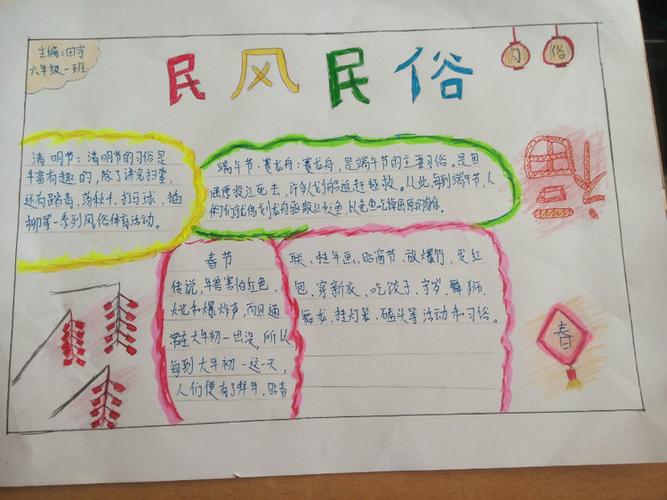 主编:田宇
六年级一班
民风民俗
习 俗
清明节:清明节的习俗是
丰富有趣的,除了讲究扫墓,
还有踏青、荡秋千、打马球、插
柳等一系列风俗体育活动。
端午节·赛龙舟:赛龙舟,是端午节的主要习俗。
投江死去,许多人划船追赶拯救。从此,每到端午节,人
们们
春节
传说,年兽害怕红色、
火光和爆炸声,而且通
常在大年初一出没,所以
每到大年初一这天,
人们便有了拜年、贴春
联、挂年画、贴窗花、放爆竹、发红
包、穿新衣、吃饺子、守岁、舞狮、
舞龙、挂灯笼、磕头等活动和习俗。
春